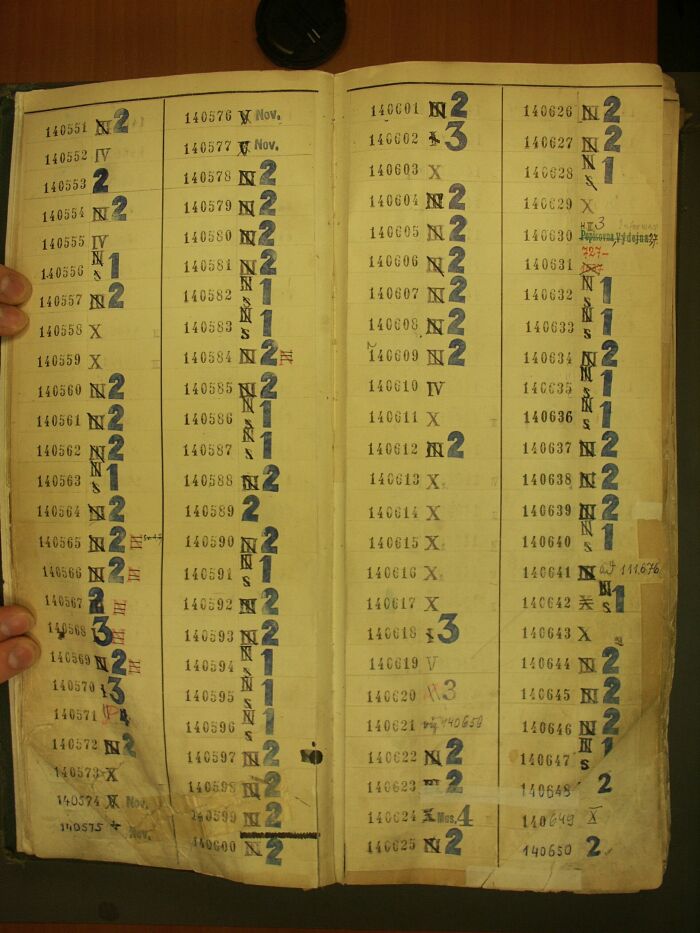 140551 N 2
140552 IV
140553 2
140554 N 2
140555 IV
140556 N s 1
140557 N 2
140558 X
140559 X
140560 N 2
140561 N 2
140562 N 2
140563 N s 1
140564 N 2
140565 N 2 III
140566 N 2 III
140567 2 III
140568 3 III
140569 N 2 III
140570 3
140571
140572 N 2
140573 X
140574 X Nov.
140575 Nov.
140576 V Nov.
140577 V Nov.
140578 N 2
140579 N 2
140580 N 2
140581 N 2
140582 N s 1
140583 N s 1
140584 N 2 III
140585 N 2
140586 N s 1
140587 N s 1
140588 N 2
140589 2
140590 N 2
140591 N s 1
140592 N 2
140593 N 2
140594 N s 1
140595 N s 1
140596 N s 1
140597 N 2
140598 N 2
140599 N 2
140600 N 2
140601 N 2
140602 3
140603 X
140604 N 2
140605 N 2
140606 N 2
140607 N 2
140608 N 2
140609 N 2
140610 IV
140611 X
140612 N 2
140613 X
140614 X
140615 X
140616 X
140617 X
140618 3
140619 V
140620 3
140621 viz 140650
140622 N 2
140623 2
140624 X Nos. 4
140625 N 2
140626 N 2
140627 N 2
140628 N s 1
140629 X
140630 3 Výdejna
140631 727-
140632 N s 1
140633 N s 1
140634 N 2
140635 N s 1
140636 N s 1
140637 N 2
140638 N 2
140639 N 2
140640 N s 1
140641 N 111.676
140642 X N s 1
140643 X
140644 N 2
140645 N 2
140646 N 2
140647 N s 1
140648 2
140649 X
140650 2